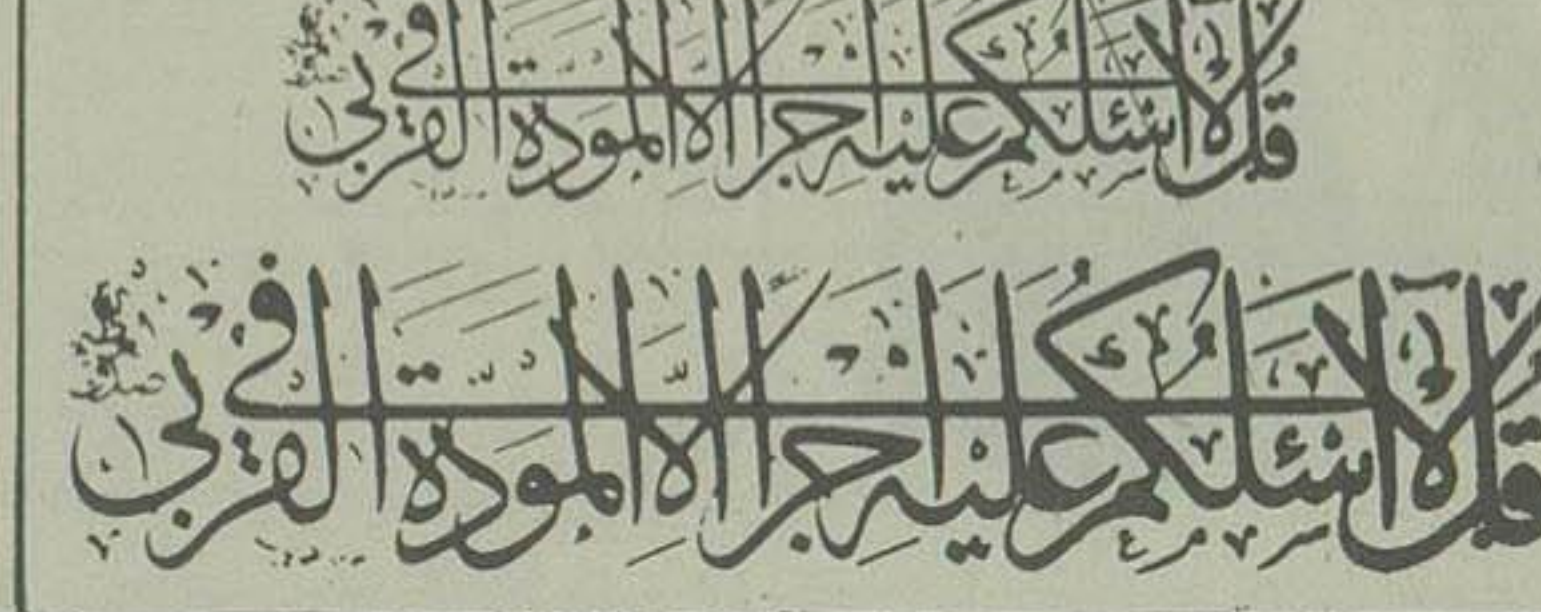 قُل لَّا أَسْئَلُكُمْ عَلَيْهِ أَجْرًا إِلَّا الْمَوَدَّةَ فِي الْقُرْبَىٰ
قُل لَّا أَسْئَلُكُمْ عَلَيْهِ أَجْرًا إِلَّا الْمَوَدَّةَ فِي الْقُرْبَىٰ